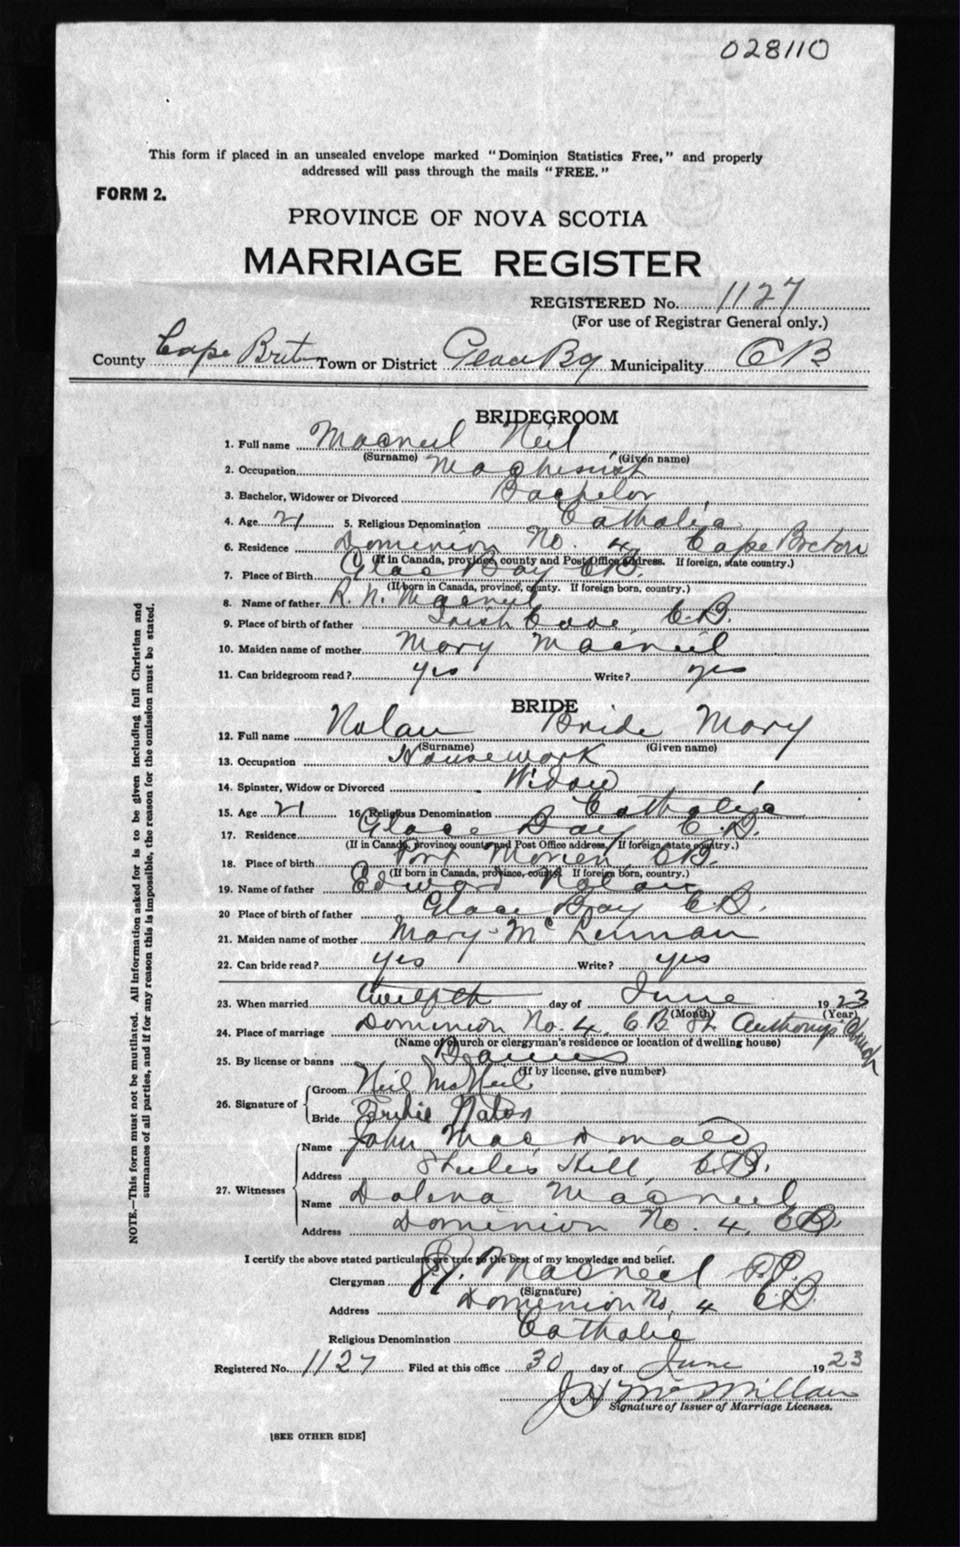 028110
This form if placed in an unsealed envelope marked "Dominion Statistics Free," and properly
addressed will pass through the mails "FREE."
FORM 2.
PROVINCE OF NOVA SCOTIA
MARRIAGE REGISTER
REGISTERED No. 1127
(For use of Registrar General only.)
County Cape Breton Town or District Glace Bay Municipality CB
BRIDEGROOM
1. Full name Macneil Neil
(Surname) (Given name)
2. Occupation Machinist
3. Bachelor, Widower or Divorced Bachelor
4. Age 21 5. Religious Denomination Catholic
6. Residence Dominion No. 4 Cape Breton
(If in Canada, province, county and Post Office address. If foreign, state country.)
7. Place of Birth Glace Bay C.B.
(If born in Canada, province, county. If foreign born, country.)
8. Name of father R. N. Macneil
9. Place of birth of father Irish Cove, C.B.
10. Maiden name of mother Mary Macneil
11. Can bridegroom read? yes Write? yes
BRIDE
12. Full name Nolan Bride Mary
(Surname) (Given name)
13. Occupation Housework
14. Spinster, Widow or Divorced Widow
15. Age 21 16. Religious Denomination Catholic
17. Residence Glace Bay C.B.
(If in Canada, province county and Post Office address, If foreign, state country.)
18. Place of birth Port Morien, C.B.
(If born in Canada, province, county. If foreign born, country.)
19. Name of father Edward Nolan
20 Place of birth of father Glace Bay C.B.
21. Maiden name of mother Mary
22. Can bride read? yes Write? yes
23. When married twelfth day of June 1923
(Month) (Year)
24. Place of marriage Dominion No. 4, C.B. St. Anthonys Church
(Name of church or clergyman's residence or location of dwelling house)
25. By license or banns Banns
(If by license, give number)
26. Signature of Groom Neil McNeil
Bride
27. Witnesses Name John MacDonald
Address Hill, C.B.
Name Dolena Macneil
Address Dominion No. 4, C.B.
I certify the above stated particulars are true to the best of my knowledge and belief.
Clergyman Macneil P.P.
(Signature)
Address Dominion No. 4 C.B.
Religious Denomination Catholic
Registered No. 1127 Filed at this office 30 day of June 1923
J H McMillan
Signature of Issuer of Marriage Licenses.
[SEE OTHER SIDE]
NOTE.—This form must not be mutilated. All information asked for is to be given including full Christian and
surnames of all parties, and if for any reason this is impossible, the reason for the omission must be stated.